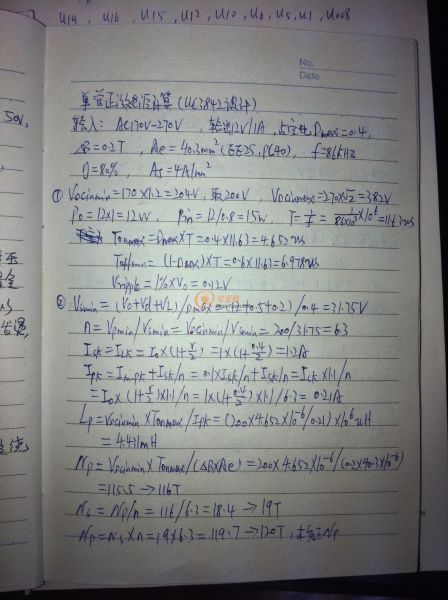 U19, U16, U15, U12, U10, U6, U5, U1, U008
No.
Date
50V,
单管正激电源计算(UC3842设计)
输入: AC170V-270V, 输出12V/1A, 占空比Dmax=0.4,
ΔB=0.2T, Ae=40.3mm²(EE25,PC40), f=86kHz
η=80%, AJ=4A/mm²
① VDCinmin=170×1.2=204V, 取200V, VDCinmax=270×√2=382V
Po=12×1=12W, Pin=12/0.8=15W, T=1/f=1/(86×10³)×10⁶=11.63us
Tonmax=Dmax×T=0.4×11.63=4.652us
Toffmin=(1-Dmax)×T=0.6×11.63=6.978us
Vripple=1%×Vo=0.12V
② Vsmin=(Vo+Vd+VL)/Dmax=(12+0.5+0.2)/0.4=31.75V
n=Vpmin/Vsmin=VDCinmin/Vsmin=200/31.75=6.3
Isk=ILk=Io×(1+r/2)=1×(1+0.4/2)=1.2A
Ipk=Imipk+Isk/n=0.1×Isk/n+Isk/n=ILk×1.1/n
=Io×(1+r/2)×1.1/n=1×(1+0.4/2)×1.1/6.3=0.21A
Lp=VDCinmin×Tonmax/Ipk=(200×4.652×10⁻⁶/0.21)×10⁶uH
=4.431mH
Np=VDCinmin×Tonmax/(ΔB×Ae)=200×4.652×10⁻⁶/(0.2×40.3×10⁻⁶)
=115.5→116T
Ns=Np/n=116/6.3=18.4→19T
Np=Ns×n=19×6.3=119.7→120T,